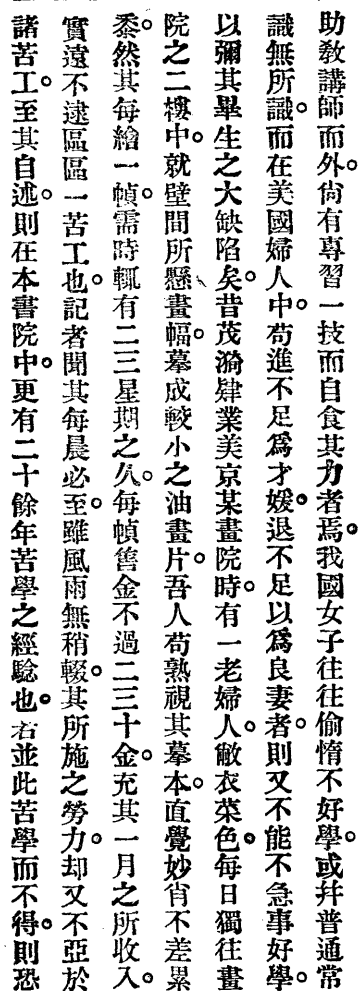 助教講師而外。尙有專習一技而自食其力者焉。我國女子往往偷惰不好學。或幷普通常
識無所識。而在美國婦人中。苟進不足爲才媛。退不足以爲良妻者。則又不能不急事好學。
以彌其畢生之大缺陷矣。昔茂漪肄業美京某畫院時。有一老婦人。敝衣菜色。每日獨往畫
院之二樓中。就壁間所懸畫幅。摹成較小之油畫片。吾人苟熟視其摹本。直覺妙肖不差累
黍。然其每繪一幀。需時輒有二三星期之久。每幀售金不過二三十金。充其一月之所收入。
實遠不逮區區一苦工也。記者聞其每晨必至。雖風雨無稍輟。其所施之勞力。却又不亞於
諸苦工。至其自述。則在本書院中。更有二十餘年苦學之經驗也。若並此苦學而不得。則恐